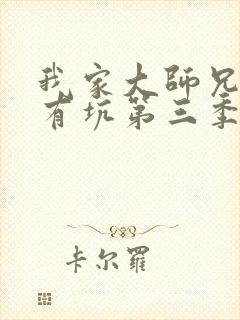 我家大師兄
有坑第三季
卡尔羅